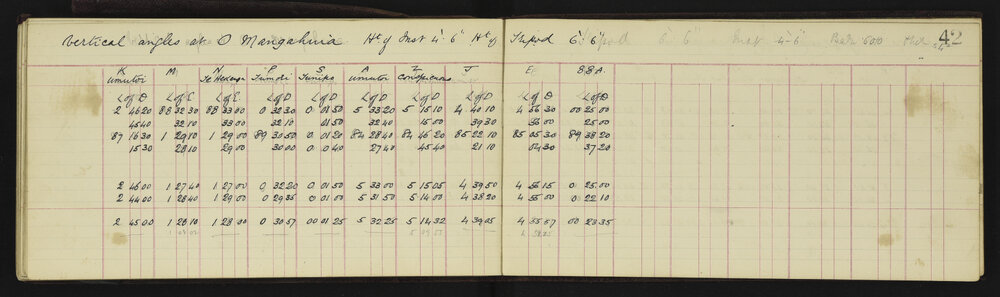 Vertical angles at O Mangahuia Ht of Inst 4'·6" Ht of Tripod 6' 6" 42
K M N P S A Z J E B.B.A.
umutoi Te Hekenga Tumoki Tuniko umutoi Conspicuous
∠ of D ∠ of E ∠ of E ∠ of D ∠ of D ∠ of D ∠ of D ∠ of D ∠ of D ∠ of D
2 46 20 88 32 30 88 33 00 0 32 30 0 01 50 5 33 20 5 15 10 4 40 10 4 56 30 00 25 00
45 40 32 10 33 00 32 10 01 50 32 40 15 00 39 30 56 00 25 00
87 16 30 1 29 10 1 29 00 89 30 50 0 01 20 84 28 40 84 46 20 85 22 10 85 05 30 89 38 20
15 30 28 10 29 00 30 00 0 0 40 27 40 45 40 21 10 04 30 37 20
2 46 00 1 27 40 1 27 00 0 32 20 0 01 50 5 33 00 5 15 05 4 39 50 4 56 15 0 25 00
2 44 00 1 28 40 1 29 00 0 29 35 0 01 00 5 31 50 5 14 00 4 38 20 4 55 00 0 22 10
2 45 00 1 28 10 1 28 00 0 30 57 00 01 25 5 32 25 5 14 32 4 39 05 4 55 37 00 23 35